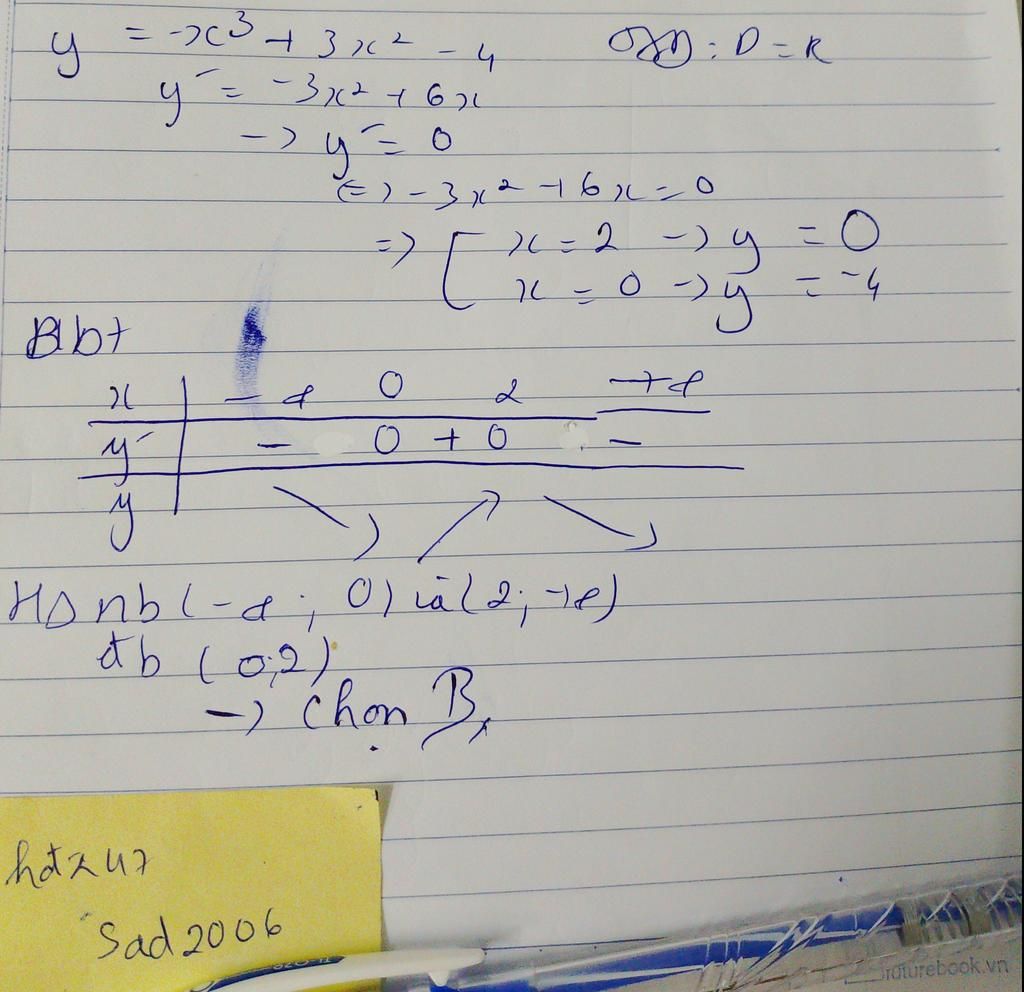 y = -x³ + 3x² - 4 TXĐ: D = R
y' = -3x² + 6x
-> y' = 0
<=> -3x² + 6x = 0
=> [ x = 2 -> y = 0
x = 0 -> y = -4
Bbt
x -∞ 0 2 +∞
y' - 0 + 0 -
y
HS nb (-∞; 0) và (2; +∞)
đb (0;2)
-> Chọn B
hotz47
Sad2006
futurebook.vn